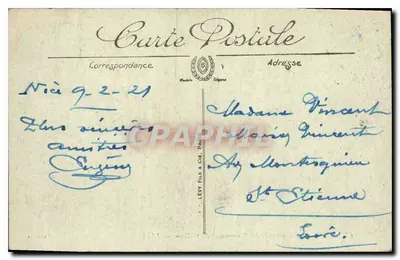 Carte Postale
Correspondance
Adresse
Nice 9-2-21
Plus sincères
amitiés
Eugène
LEVY FILS & CIE, PARIS
CPAPHIL
Madame Vincent
Vincent
Montesquieu
St Etienne
Loire